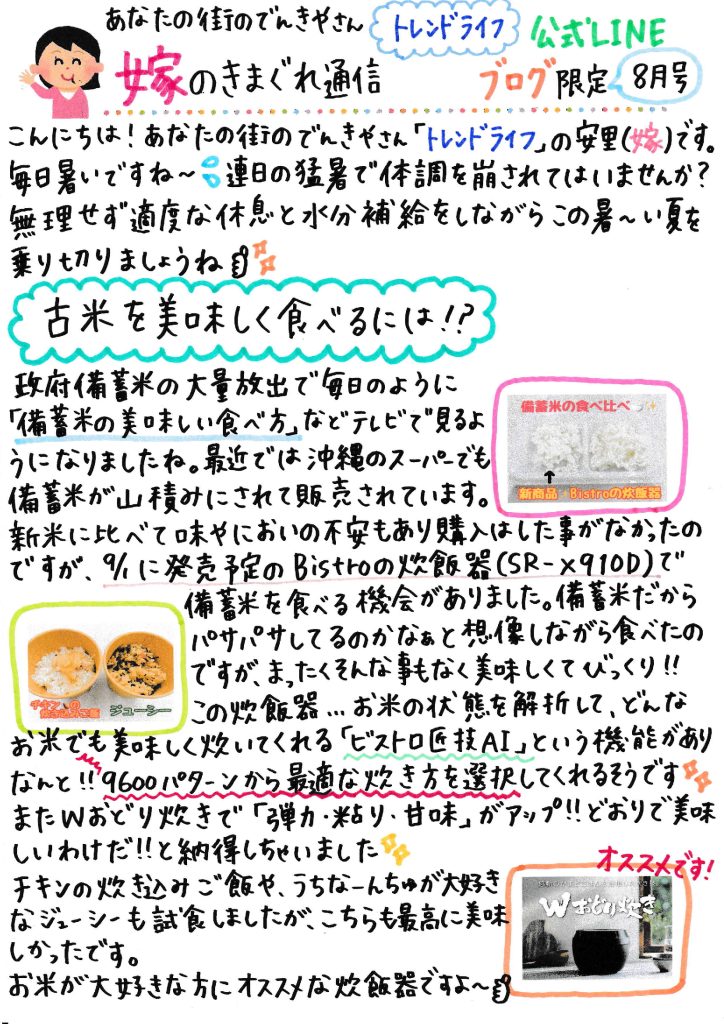 あなたの街のでんきやさん トレンドライフ 公式LINE
嫁のきまぐれ通信 ブログ限定 8月号
こんにちは！あなたの街のでんきやさん「トレンドライフ」の安里(嫁)です。
毎日暑いですね〜連日の猛暑で体調を崩されてはいませんか？
無理せず適度な休息と水分補給をしながらこの暑〜い夏を
乗り切りましょうね
古米を美味しく食べるには!?
政府備蓄米の大量放出で毎日のように
「備蓄米の美味しい食べ方」などテレビで見るよ
うになりましたね。最近では沖縄のスーパーでも
備蓄米が山積みにされて販売されています。
備蓄米の食べ比べ
↑
新商品 Bistroの炊飯器
新米に比べて味やにおいの不安もあり購入はした事がなかったの
ですが、9/1に発売予定のBistroの炊飯器(SR-X910D)で
備蓄米を食べる機会がありました。備蓄米だから
パサパサしてるのかなぁと想像しながら食べたの
ですが、まったくそんな事もなく美味しくてびっくり!!
この炊飯器…お米の状態を解析して、どんな
チキンの
炊き込みご飯
ジューシー
お米でも美味しく炊いてくれる「ビストロ匠技AI」という機能があり
なんと!!9600パターンから最適な炊き方を選択してくれるそうです
またWおどり炊きで「弾力・粘り・甘味」がアップ!!どおりで美味
しいわけだ!!と納得しちゃいました
チキンの炊き込みご飯や、うちなーんちゅが大好き
なジューシーも試食しましたが、こちらも最高に美味
しかったです。
お米が大好きな方にオススメな炊飯器ですよ〜
オススメです!
Wおどり炊き